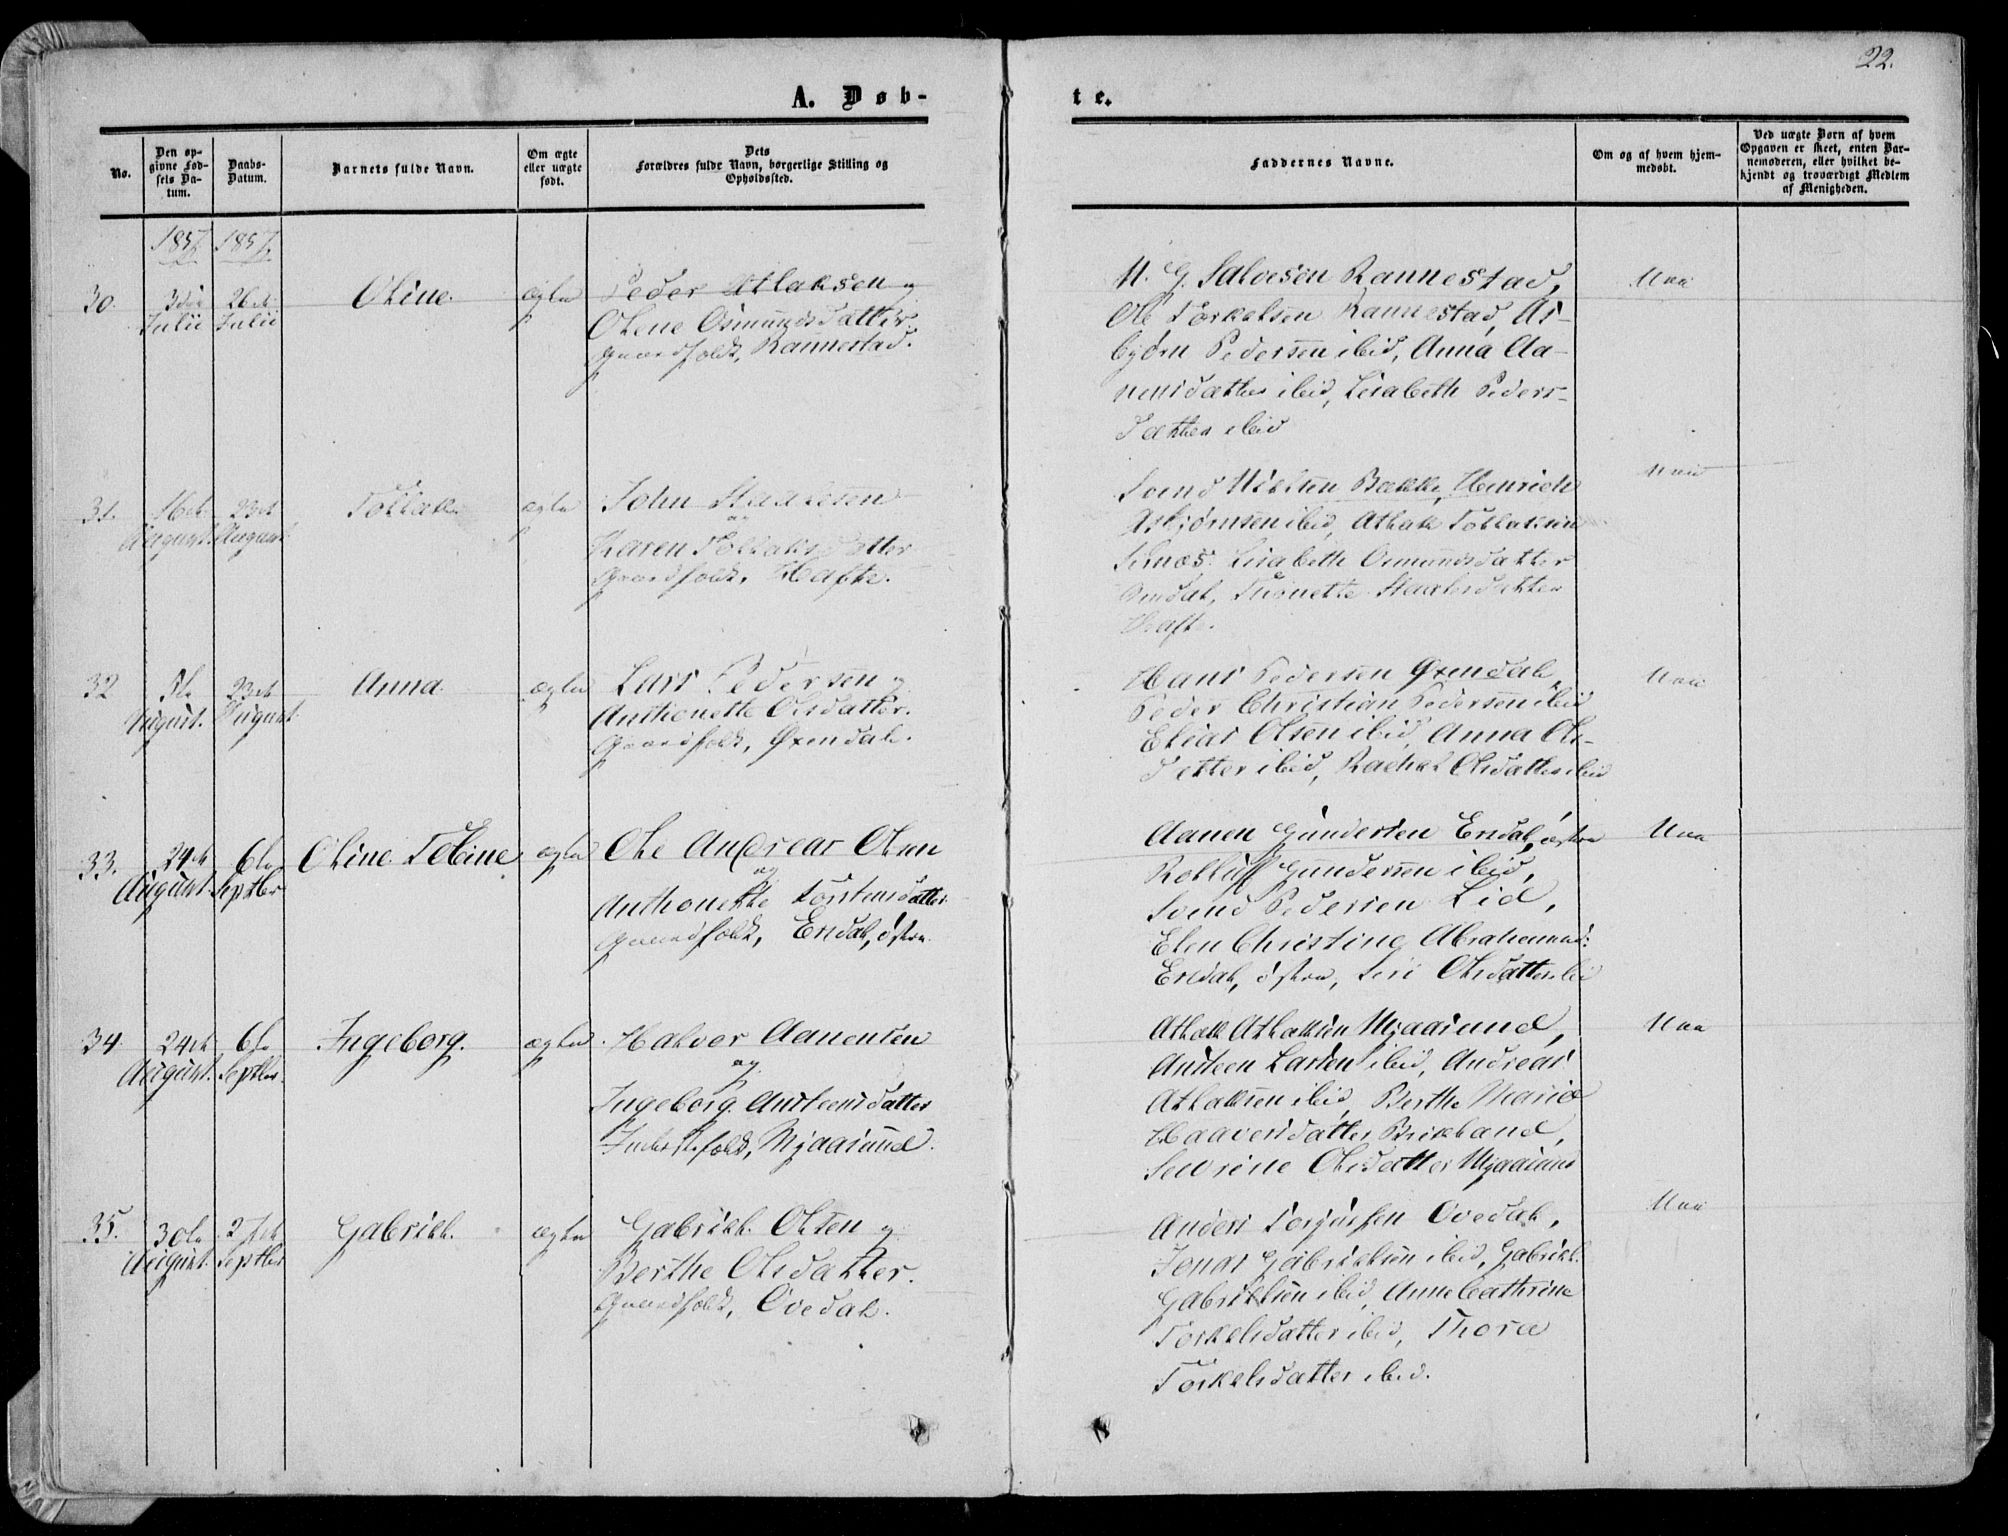 22.
A. Døb-
te.
No.
Den op-
givne Fød-
sels Da-
tum.
Daabs-
Datum.
Barnets fulde Navn.
Om ægte
eller uægte
født.
Dets
Forældres fulde Navn, borgerlige Stilling og
Opholdssted.
Faddernes Navne.
Om og af hvem hjem-
medøbt.
Ved uægte Børn af hvem
Opgaven er skeet, enten Bar-
nemoderen, eller hvilket be-
kjendt og troværdigt Medlem
af Menigheden.
1857
1857
30.
3die
Julii
26de
Julii
Oline.
ægte
Peder Atlaksen og
Olene Osmundsdatter.
Gaardfolk, Rannestad.
N. G. Salvesen Rannestad,
Ole Torkelsen Rannestad, As-
bjørn Pedersen ibid, Anna Aa-
nensdatter ibid, Lisabeth Peders-
datter ibid
31.
16de
August.
23de
August
Tollak.
ægte
John Staalesen
og
Karen Tollaksdatter
Gaardfolk, Hafte.
Svend Nilsen Bakke, Henrich
Asbjørnsen ibid, Atlak Tollaksen
Lisabeth Osmundsdatter
Staalesdatter
32
5te
August.
23de
August
Anna.
ægte
Lars Pedersen og
Anthonette Olsdatter.
Gaardfolk, Øxendal.
Hans Pedersen Øxendal,
Peder Christian Pedersen ibid
Elias Olsen ibid, Anna Ols-
datter ibid, Rachel Olsdatter ibid
33.
24de
August.
6te
Septbr
Oline Tobine
ægte
Ole Andreas Olsen
og
Anthonette Torstensdatter.
Gaardfolk, Eresdal, østre.
Aanen Gundersen Eresdal, østre
Rolluff Gundersen ibid,
Svend Pedersen Lid,
Elen Christine Abrahamsd:
Eresdal, østre, Siri Olsdatter ibi
34
24de
August.
6te
Septbr.
Ingeborg.
ægte
Halvor Aanensen
og
Ingeborg Austeensdatter
Inderstfolk, Mjaasund.
Atlak Atlaksen Mjaasund,
Austeen Larsen ibid, Andreas
Atlaksen ibid, Berthe Maria
Haaversdatter Birkeland,
Sevrine Olsdatter Mjaasund
35.
30te
August.
27de
Septbr
Gabriel.
ægte
Gabriel Olsen og
Berthe Olsdatter.
Gaardfolk, Ovedal.
Anders Torjussen Ovedal,
Jonas Gabrielsen ibid, Gabriel
Gabrielsen ibid, Anne Cathrine
Torkelsdatter ibid, Thora
Torkelsdatter ibid.